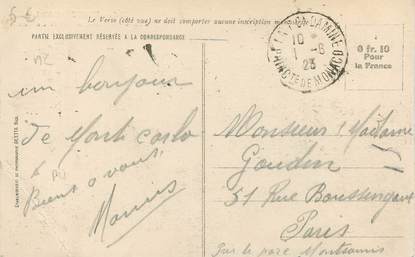 5 €
Le Verso (côté vue) ne doit comporter aucune inscription manuscrite
PARTIE EXCLUSIVEMENT RÉSERVÉE A LA CORRESPONDANCE
LA CONDAMINE
10
1 - 6
23
PRINCTÉ DE MONACO
0 fr. 10
Pour
la France
un bonjour
de Monti carlo
Biens a vous
Monsieur & Madame
Goudin
51 Rue Boussingault
Paris
Par le parc Montsouris